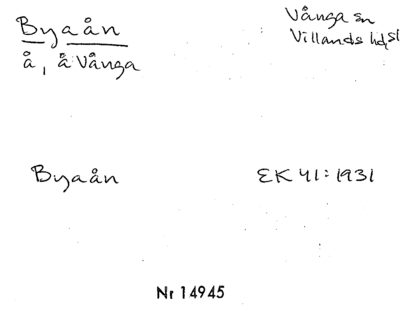 Byaån
å, å Vånga
Vånga sn
Villands hdsl
Byaån
EK 41:1931
Nr 14945